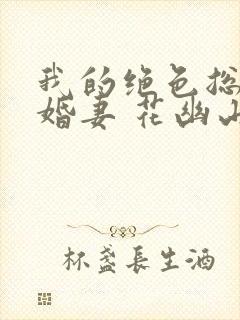 我的绝色总
婚妻 花幽山
杯盏长生酒